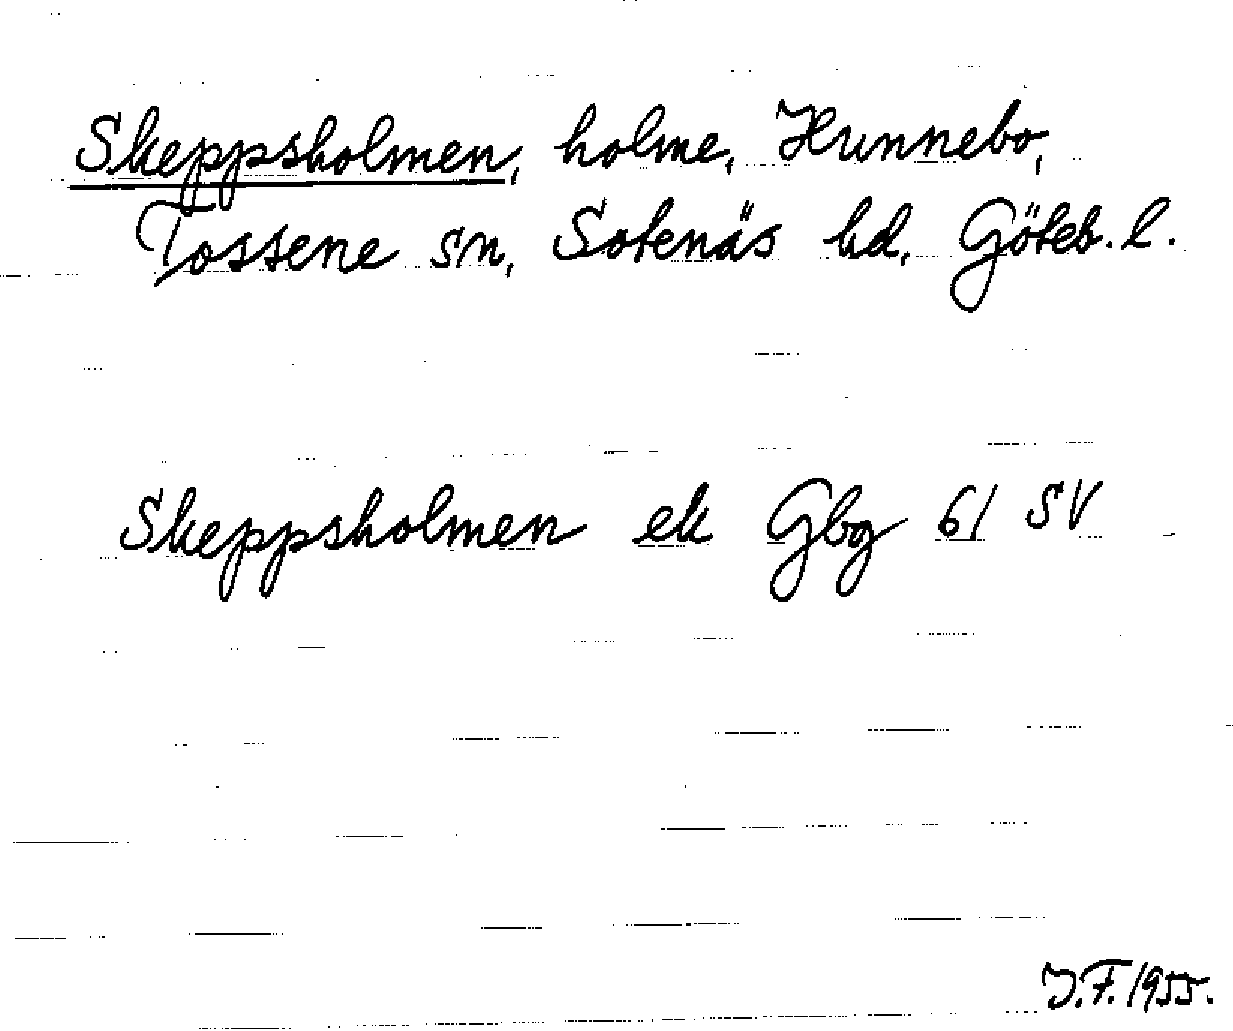 Skeppsholmen, holme, Hunnebo,
Tossene sn, Sotenäs hd, Göteb. l.
Skeppsholmen ek Gbg 61 SV
J.F. 1955.